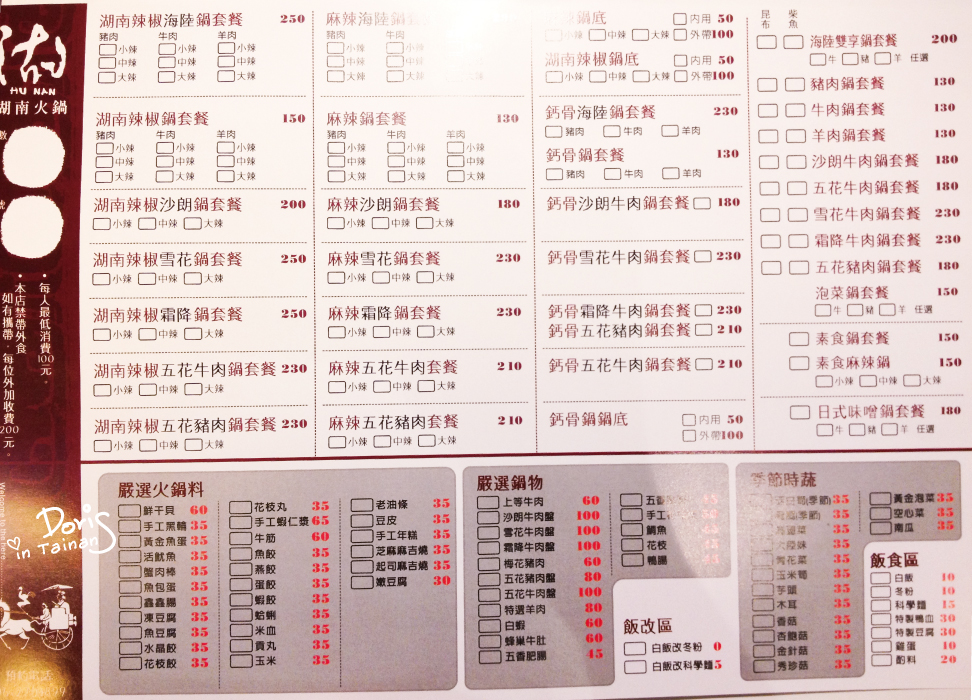 HU NAN
湖南火鍋
•每人最低消費100元。
•本店禁帶外食
如有攜帶，每位外加收費200元。
Doris
in Tainan
湖南辣椒海陸鍋套餐 250
豬肉 牛肉 羊肉
小辣 小辣 小辣
中辣 中辣 中辣
大辣 大辣 大辣
湖南辣椒鍋套餐 150
豬肉 牛肉 羊肉
小辣 小辣 小辣
中辣 中辣 中辣
大辣 大辣 大辣
湖南辣椒沙朗鍋套餐 200
小辣 中辣 大辣
湖南辣椒雪花鍋套餐 250
小辣 中辣 大辣
湖南辣椒霜降鍋套餐 250
小辣 中辣 大辣
湖南辣椒五花牛肉鍋套餐 230
小辣 中辣 大辣
湖南辣椒五花豬肉鍋套餐 230
小辣 中辣 大辣
麻辣海陸鍋套
豬肉 牛肉
小辣 小辣
中辣 中辣
大辣 大辣
麻辣鍋套餐 130
豬肉 牛肉 羊肉
小辣 小辣 小辣
中辣 中辣 中辣
大辣 大辣 大辣
麻辣沙朗鍋套餐 180
小辣 中辣 大辣
麻辣雪花鍋套餐 230
小辣 中辣 大辣
麻辣霜降鍋套餐 230
小辣 中辣 大辣
麻辣五花牛肉鍋套餐 210
小辣 中辣 大辣
麻辣五花豬肉套餐 210
小辣 中辣 大辣
鍋底 內用 50
小辣 中辣 大辣 外帶100
湖南辣椒鍋底 內用 50
小辣 中辣 大辣 外帶100
鈣骨海陸鍋套餐 230
豬肉 牛肉 羊肉
鈣骨鍋套餐 130
豬肉 牛肉 羊肉
鈣骨沙朗牛肉鍋套餐 180
鈣骨雪花牛肉鍋套餐 230
鈣骨霜降牛肉鍋套餐 230
鈣骨五花豬肉鍋套餐 210
鈣骨五花牛肉鍋套餐 210
鈣骨鍋鍋底 內用 50
外帶100
昆布 柴魚
海陸雙享鍋套餐 200
牛 豬 羊 任選
豬肉鍋套餐 130
牛肉鍋套餐 130
羊肉鍋套餐 130
沙朗牛肉鍋套餐 180
五花牛肉鍋套餐 180
雪花牛肉鍋套餐 230
霜降牛肉鍋套餐 230
五花豬肉鍋套餐 180
泡菜鍋套餐 150
牛 豬 羊 任選
素食鍋套餐 150
素食麻辣鍋 150
小辣 中辣 大辣
日式味噌鍋套餐 180
牛 豬 羊 任選
嚴選火鍋料
鮮干貝 60
手工黑輪 35
黃金魚蛋 35
活魷魚 35
蟹肉棒 35
魚包蛋 35
鑫鑫腸 35
凍豆腐 35
魚豆腐 35
水晶餃 35
花枝餃 35
花枝丸 35
手工蝦仁漿 65
牛筋 60
魚餃 35
燕餃 35
蛋餃 35
蝦餃 35
蛤蜊 35
米血 35
貢丸 35
玉米 35
老油條 35
豆皮 35
手工年糕 35
芝麻麻吉燒 35
起司麻吉燒 35
嫩豆腐 30
嚴選鍋物
上等牛肉 60
沙朗牛肉盤 100
雪花牛肉盤 100
霜降牛肉盤 100
梅花豬肉 60
五花豬肉盤 80
五花牛肉盤 100
特選羊肉 80
白蝦 60
蜂巢牛肚 60
五香肥腸 45
五香
手工
鯛魚
花枝
鴨腸
飯改區
白飯改冬粉 0
白飯改科學麵 5
季節時蔬
(季節) 35
(季節) 35
35
大陸妹 35
青花菜 35
玉米筍 35
芋頭 35
木耳 35
香菇 35
杏鮑菇 35
金針菇 35
秀珍菇 35
黃金泡菜 35
空心菜 35
南瓜 35
飯食區
白飯 10
冬粉 10
科學麵 15
特製鴨血 30
特製豆腐 30
雞蛋 10
酌料 20
預約電話